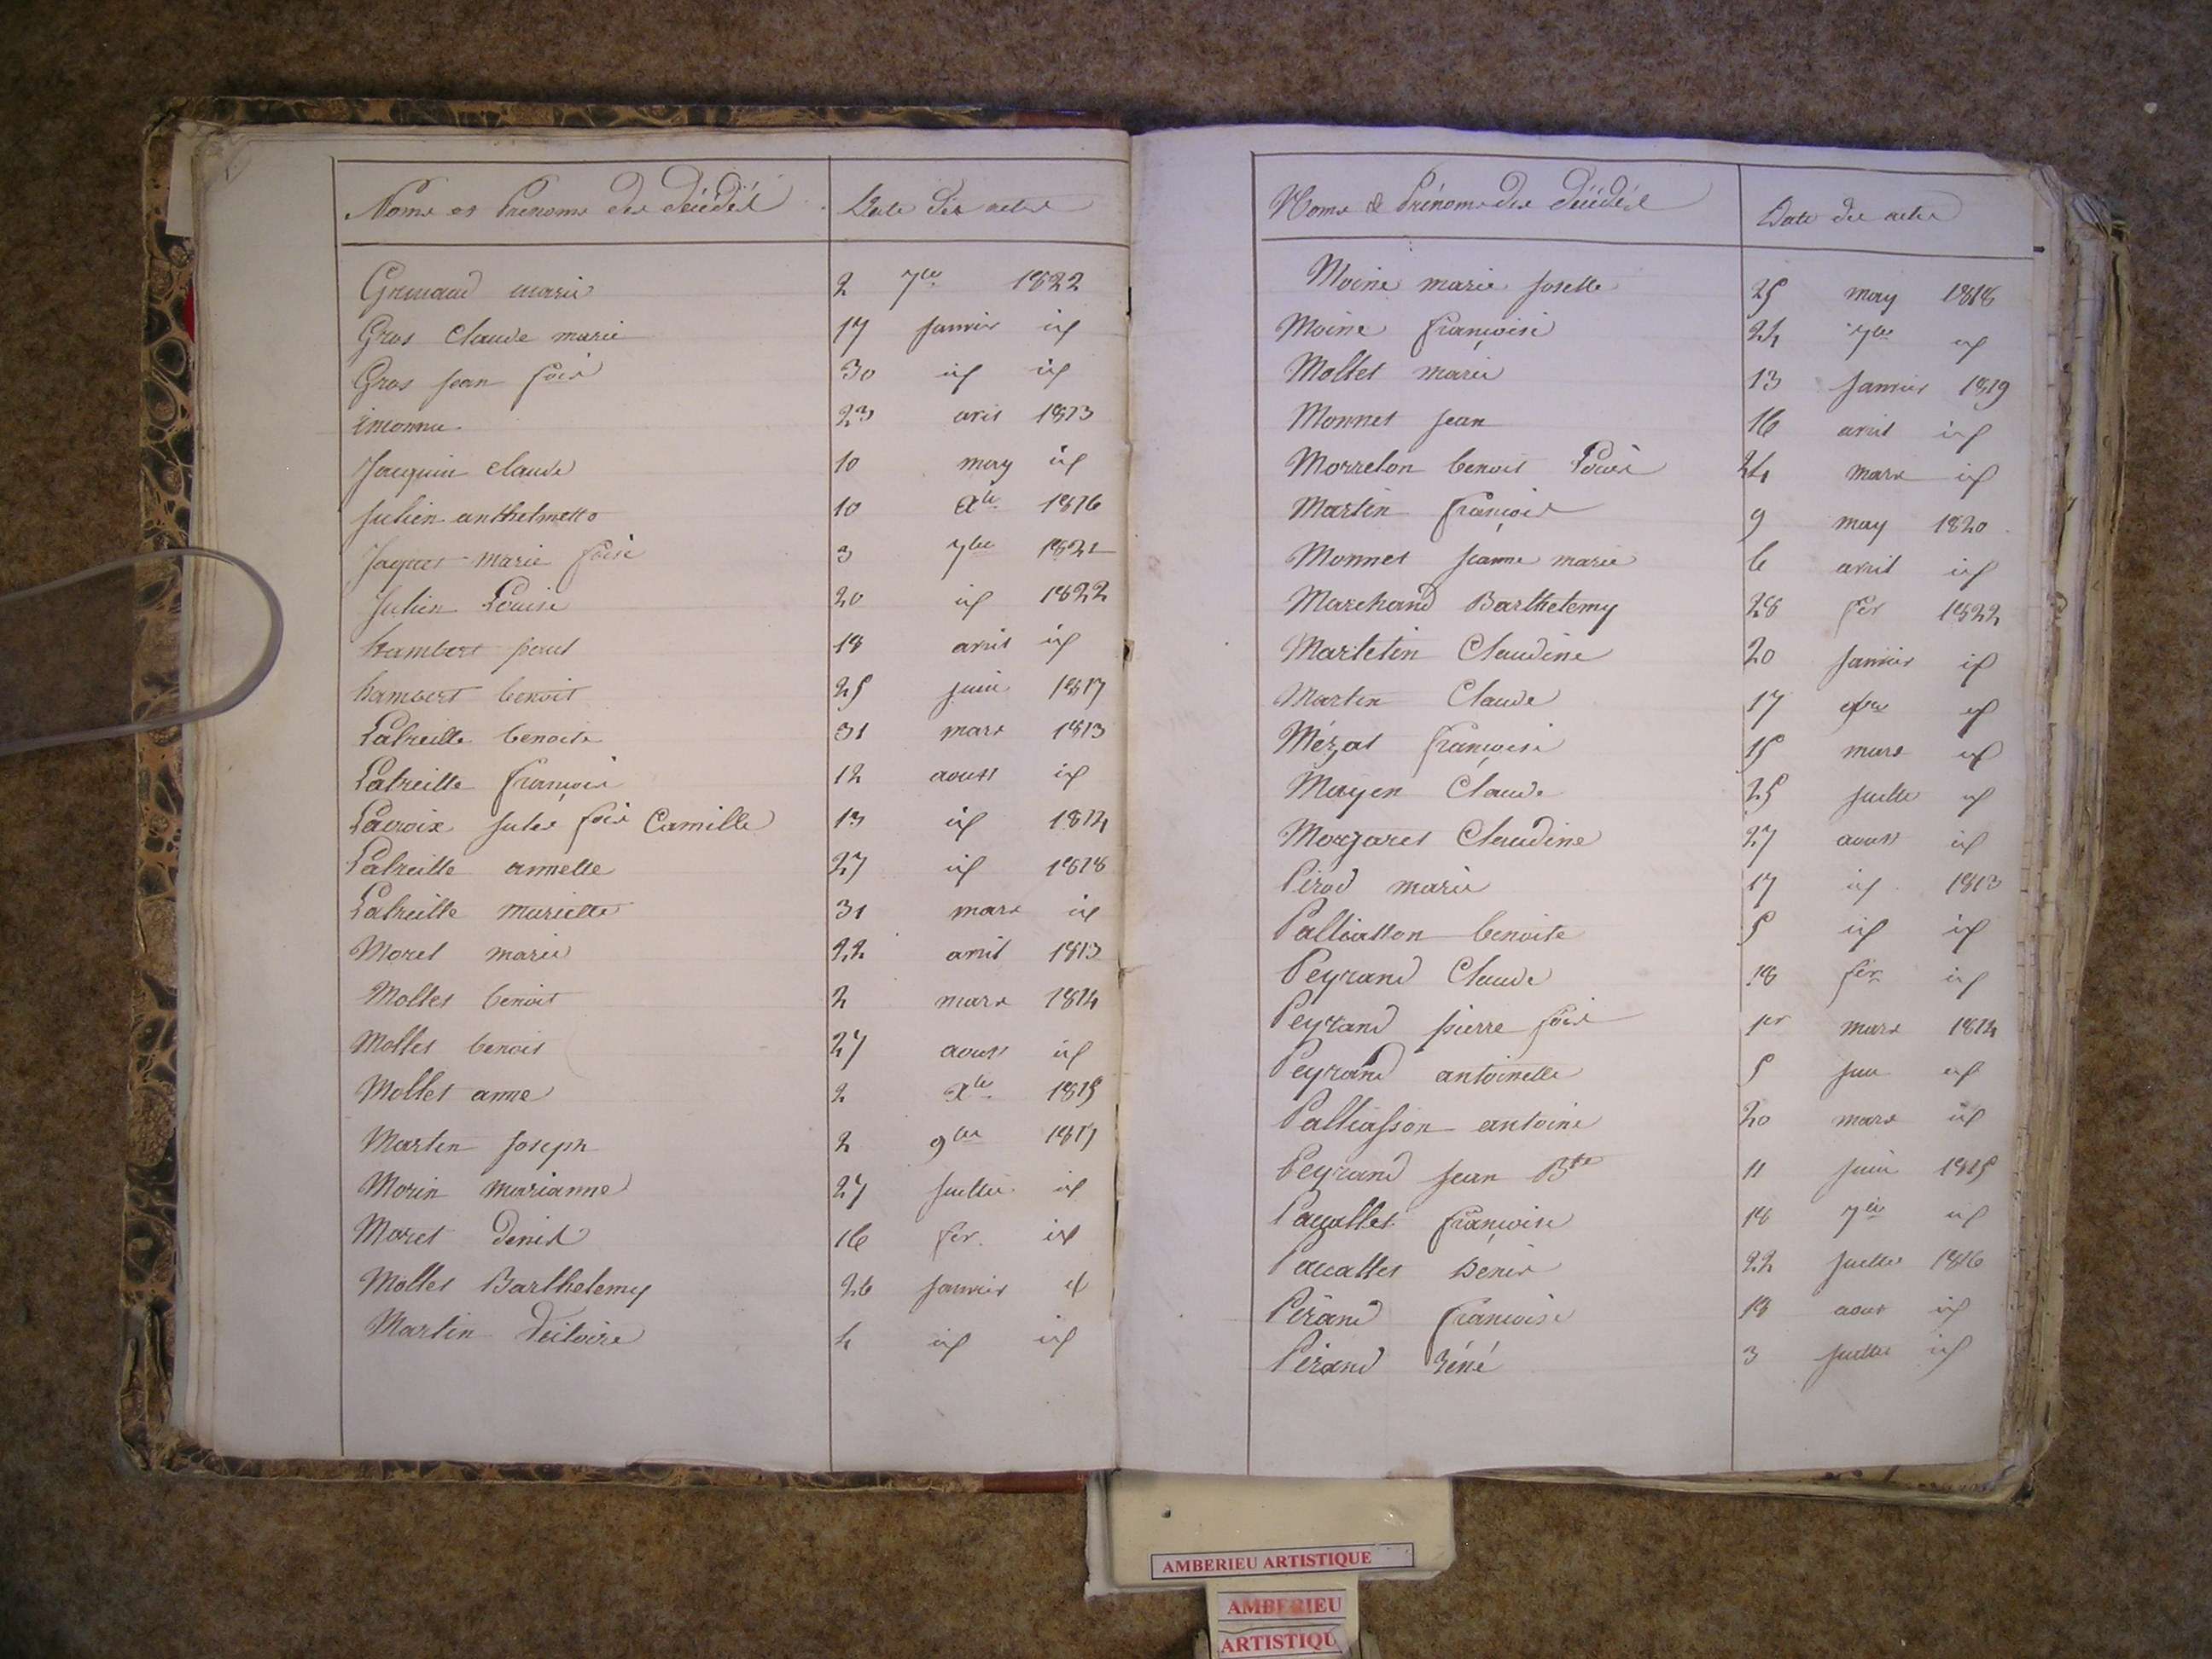 Noms et Prénoms des décédés Date des actes
Grenaud marie 2 7bre 1822
Gros Claude marie 17 janvier id
Gros jean fois 30 id id
inconnu 23 avril 1813
Jacquin claude 10 may id
Julien anthelmette 10 Xbre 1816
Jaquet marie foise 3 7bre 1821
Julien Louise 20 id 1822
Lambert paul 18 avril id
Lambert benoit 25 juin 1817
Latreille benoite 31 mars 1813
Latreille françois 12 aoust id
Lacroix jules fois Camille 13 id 1814
Latreille annette 27 id 1818
Latreille mariette 31 mars id
Morel marie 22 avril 1813
Mollet benoit 2 mars 1814
Mollet benoit 27 aoust id
Mollet anne 2 Xbre 1815
Martin joseph 2 9bre 1817
Morin marianne 27 juillet id
Moret denis 16 fer id
Mollet Barthelemy 26 janvier id
Martin Victoire 4 id id
Noms & Prénoms des décédés Date des actes
Moine marie josette 25 may 1818
Moine françoise 24 7bre id
Mollet marie 13 janvier 1819
Monnet jean 16 avril id
Morrelon benoit Louis 24 mars id
Martin françois 9 may 1820
Monnet jeanne marie 6 avril id
Marchand Barthelemy 28 fer 1822
Martetin Claudine 20 janvier id
Martin Claude 17 id
Mézat françoise 15 mars id
Moyen Claude 25 juillet id
Morjaret Claudine 27 aoust id
Pirod marie 17 id 1813
Palliasson benoite 5 id id
Peyrand Claude 18 fer id
Peyrand pierre fois 1er mars 1814
Peyrand antoinette 5 id
Palliasson antoine 20 mars id
Peyrand jean Bte 11 juin 1815
Pacallet françoise 18 7bre id
Pacallet Denis 22 juillet 1816
Pérand françoise 18 aout id
Pérand réné 3 juillet id
AMBERIEU ARTISTIQUE
AMBERIEU
ARTISTIQU